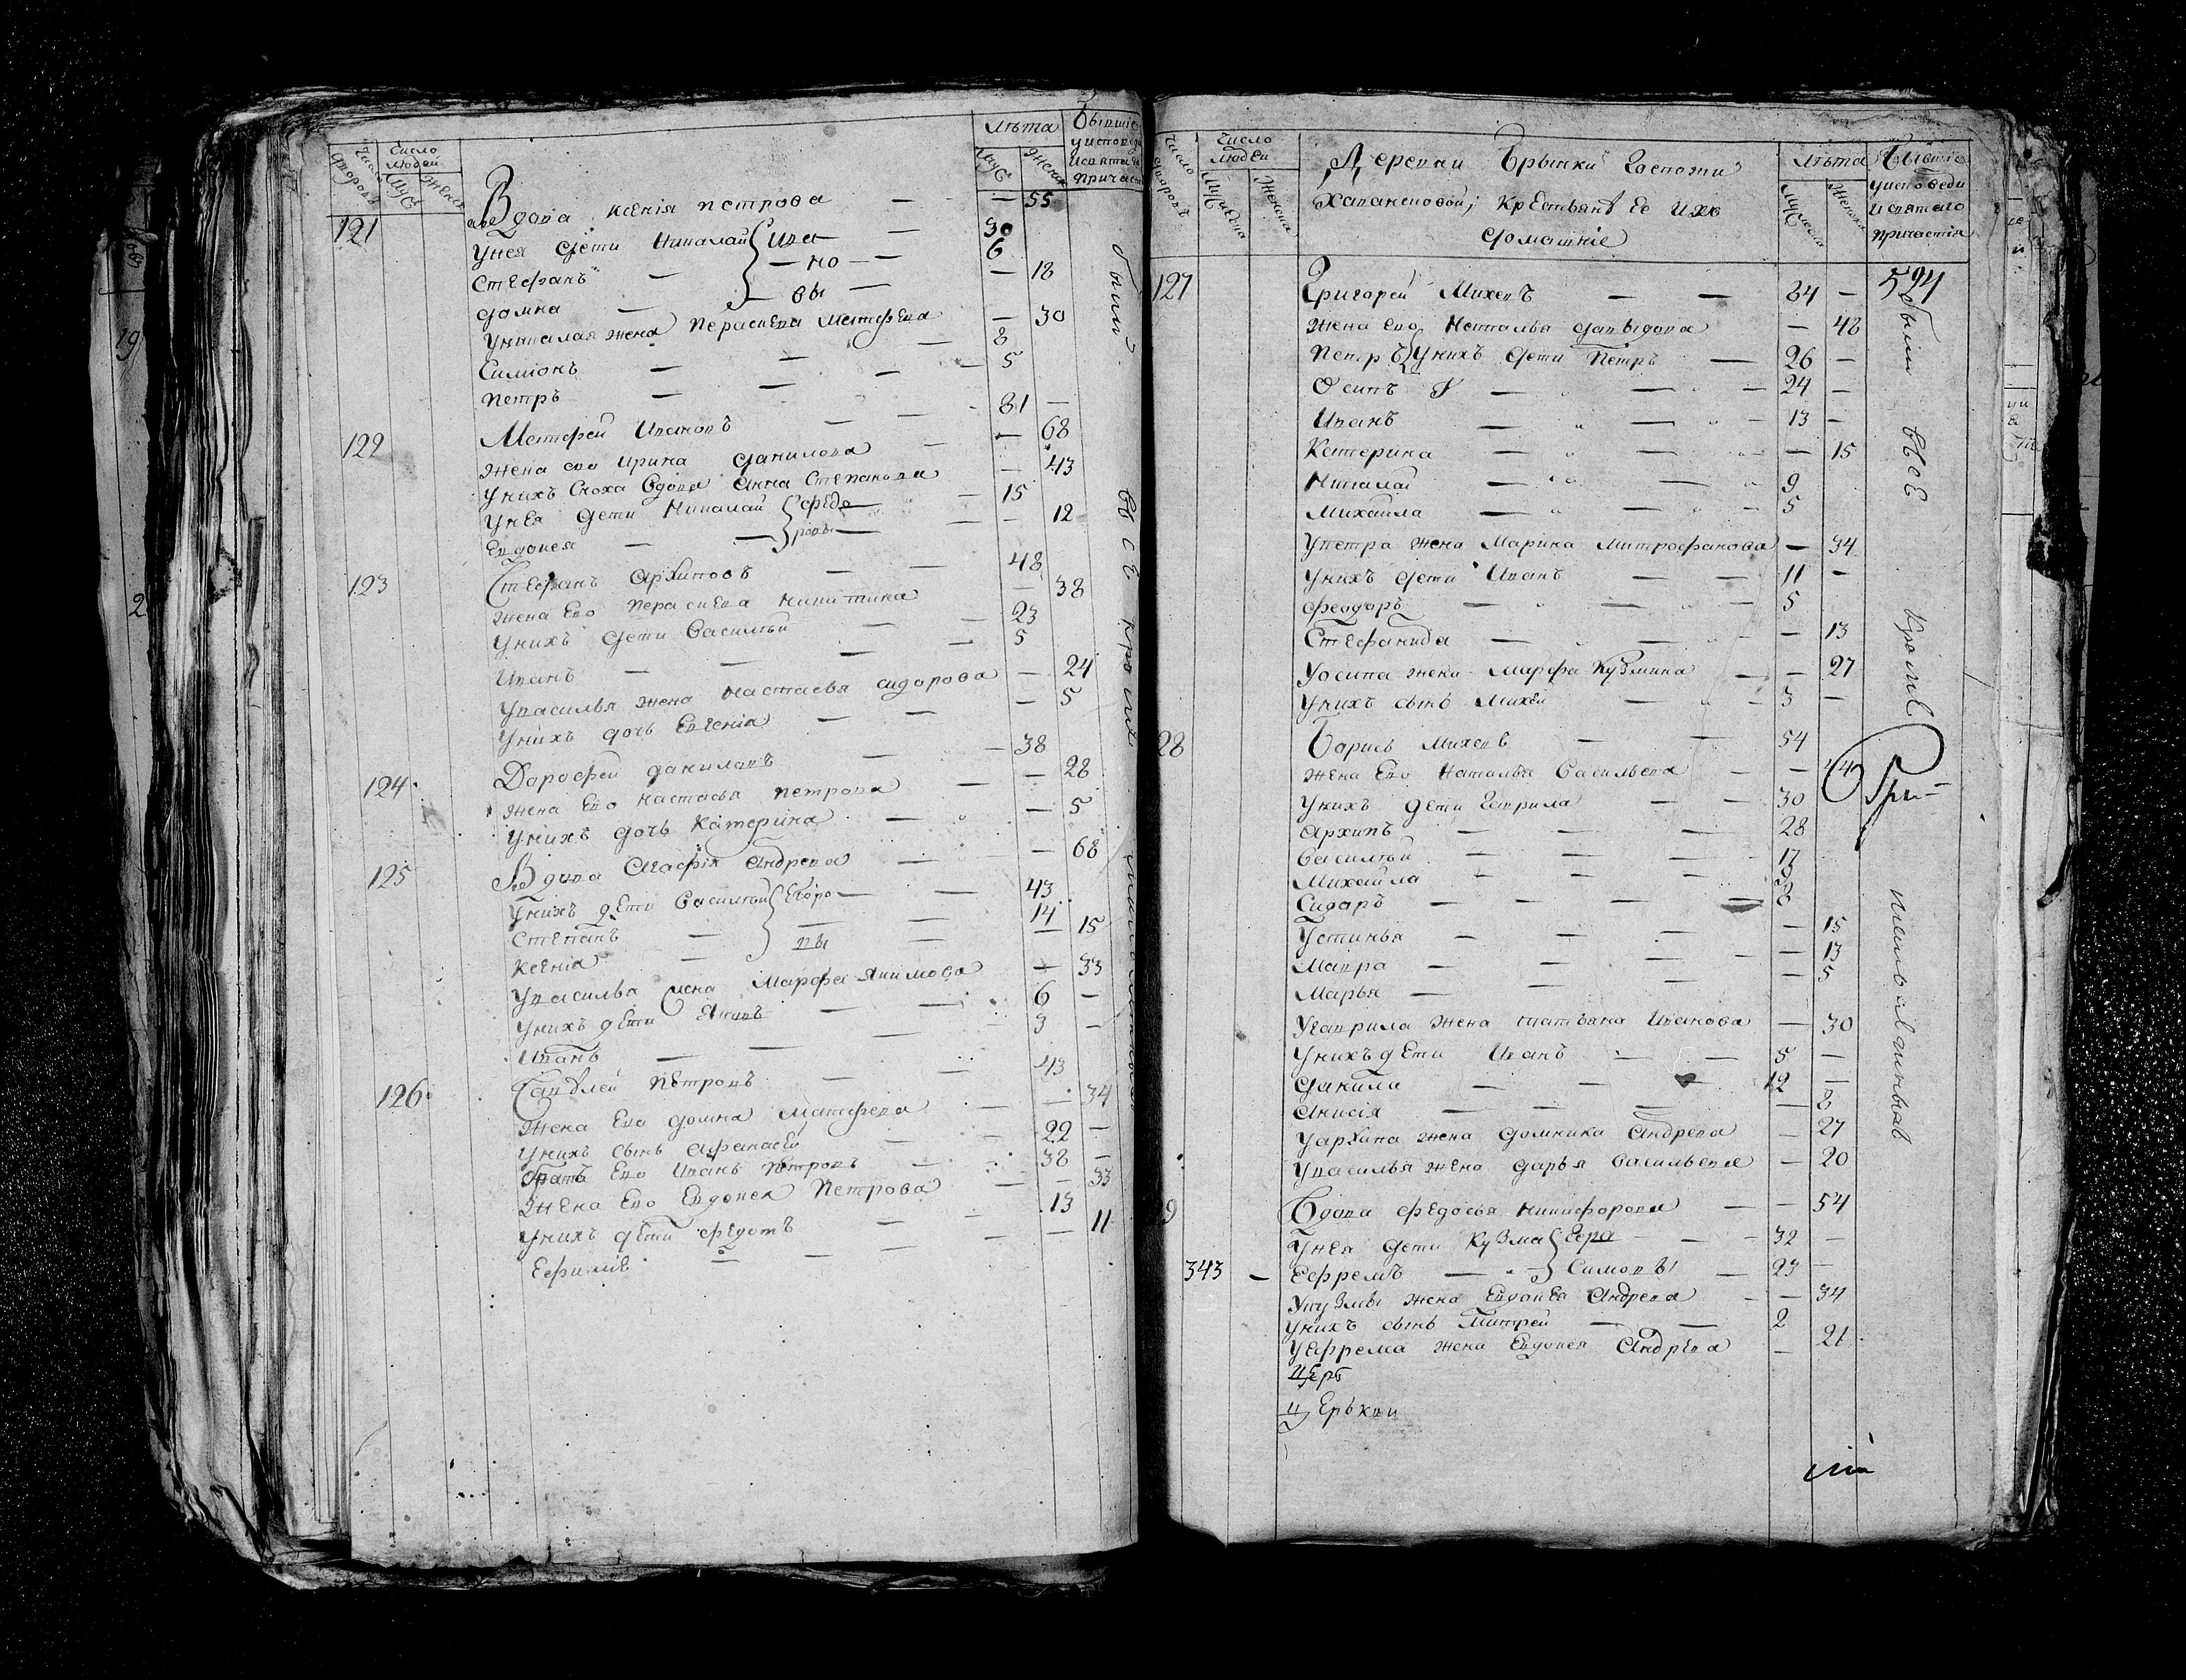 Число дворовъ
Число людей
Муж
Женск
Лѣта
Муж
Женск
Бывшіе
у исповеди
и святаго
причастія
121 Вдова Ксенія Петрова — — 55
у нея дети Николай Ива — 30
Стефанъ — но — 6
Домна — вы — — 18
у Николая жена Мотфеева — 30
Симіонъ — — 8
Петръ — — 5
122 Матфей Ивановъ — 81 —
жена ево Ирина Данилова — 68
у нихъ сноха вдова Анна Степанова — 43
у нея дети Николай Федо — 15
Евдокея — ровы — — 12
123 Стефанъ Архиповъ — — 48
жена ево Никитина — 38
у нихъ дети Василѣй — 23
Иванъ — — 5
у василья жена Настасья Сидорова — 24
у нихъ дочь Евгенія — — 5
124 Дорофей Даниловъ — 38
жена ево Настасья Петрова — — 28
у нихъ дочь Катерина — — 5
125 Вдова Агафія Андрева — — 68
у нихъ дети Василѣй Егоро — 43
Степанъ — — 14
Ксенія — вы — 15
у василья жена Марфа Якимова — 33
у нихъ дети — 6 —
Иванъ — — 3 —
126 Савелей Петровъ — 43
жена ево Домна Матфева — — 34
у нихъ сынъ Афанасей — 22 —
братъ ево Иванъ Петровъ — 38 —
жена ево Евдокея Петрова — — 33
у нихъ дети Федотъ — 13
Ефиміе — — — 11
были
всѣ кроме
Число дворовъ
Число людей
Мужеска
Женска
Деревни Брынки Госпожи
крестьянъ ее и ихъ
домашніе
Лѣта
Мужеска
Женска
Бывшіе
у исповеди
и святаго
причастія
127 Григорей Михевъ — — 84 — 524
жена ево Наталья Давыдова — 48
Петръ у нихъ дети Петръ — 26 —
Осипъ — — 24 —
Иванъ — — 13 —
Катерина — — — 15
Николай — — 9
Михайла — — 5
у петра жена Марина Митрофанова — 34
у нихъ дети Иванъ — — 11 —
Феодоръ — — 5
Стефанида — — — 13
у осипа жена Марфа Кузмина — — 27
у нихъ сынъ Михей — 3 —
28 Борисъ Михевъ — — 54
жена ево Наталья Васильева — — 40
у нихъ дети Гаврила — — 30
Архипъ — — — 28
Василѣй — — — 17
Михайла — — —
Сидаръ — — — 8
Устинья — — — — 15
Мавра — — — — 13
Марья — — — — 5
у гаврила жена Татьяна Иванова — 30
у нихъ дети Иванъ — 5 —
Данила — — 12 —
Анисія — — — — 8
у архипа жена Домника Андрева — 27
у василья жена Дарья Васильева — 20
9 Вдова Федосья Никифорова — — 54
у нея дети Кузма Гера — — 32 —
343 — Ефремъ — симовы — 23 —
у кузмы жена Евдокея Андрева — — 34
у нихъ сынъ Митрей — — 2
у ефрема жена Евдокея Андрева — 21
церь
церькви
были
всѣ
кроме
Гри-